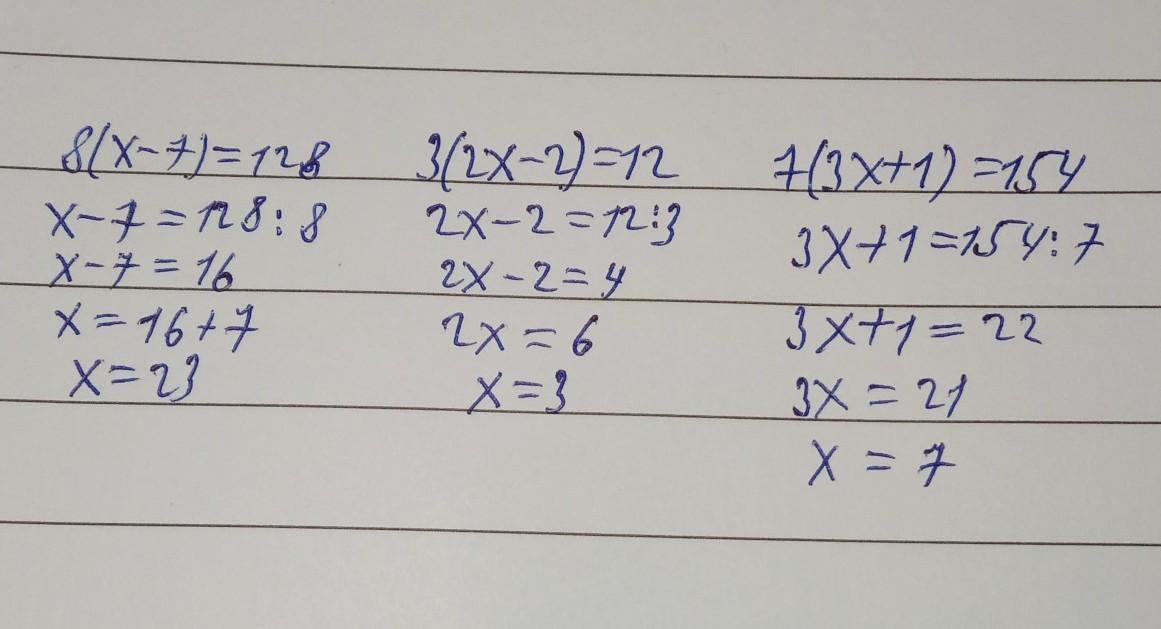 8(x-7)=128
x-7=128:8
x-7=16
x=16+7
x=23
3(2x-2)=12
2x-2=12:3
2x-2=4
2x=6
x=3
7(3x+1)=154
3x+1=154:7
3x+1=22
3x=21
x=7